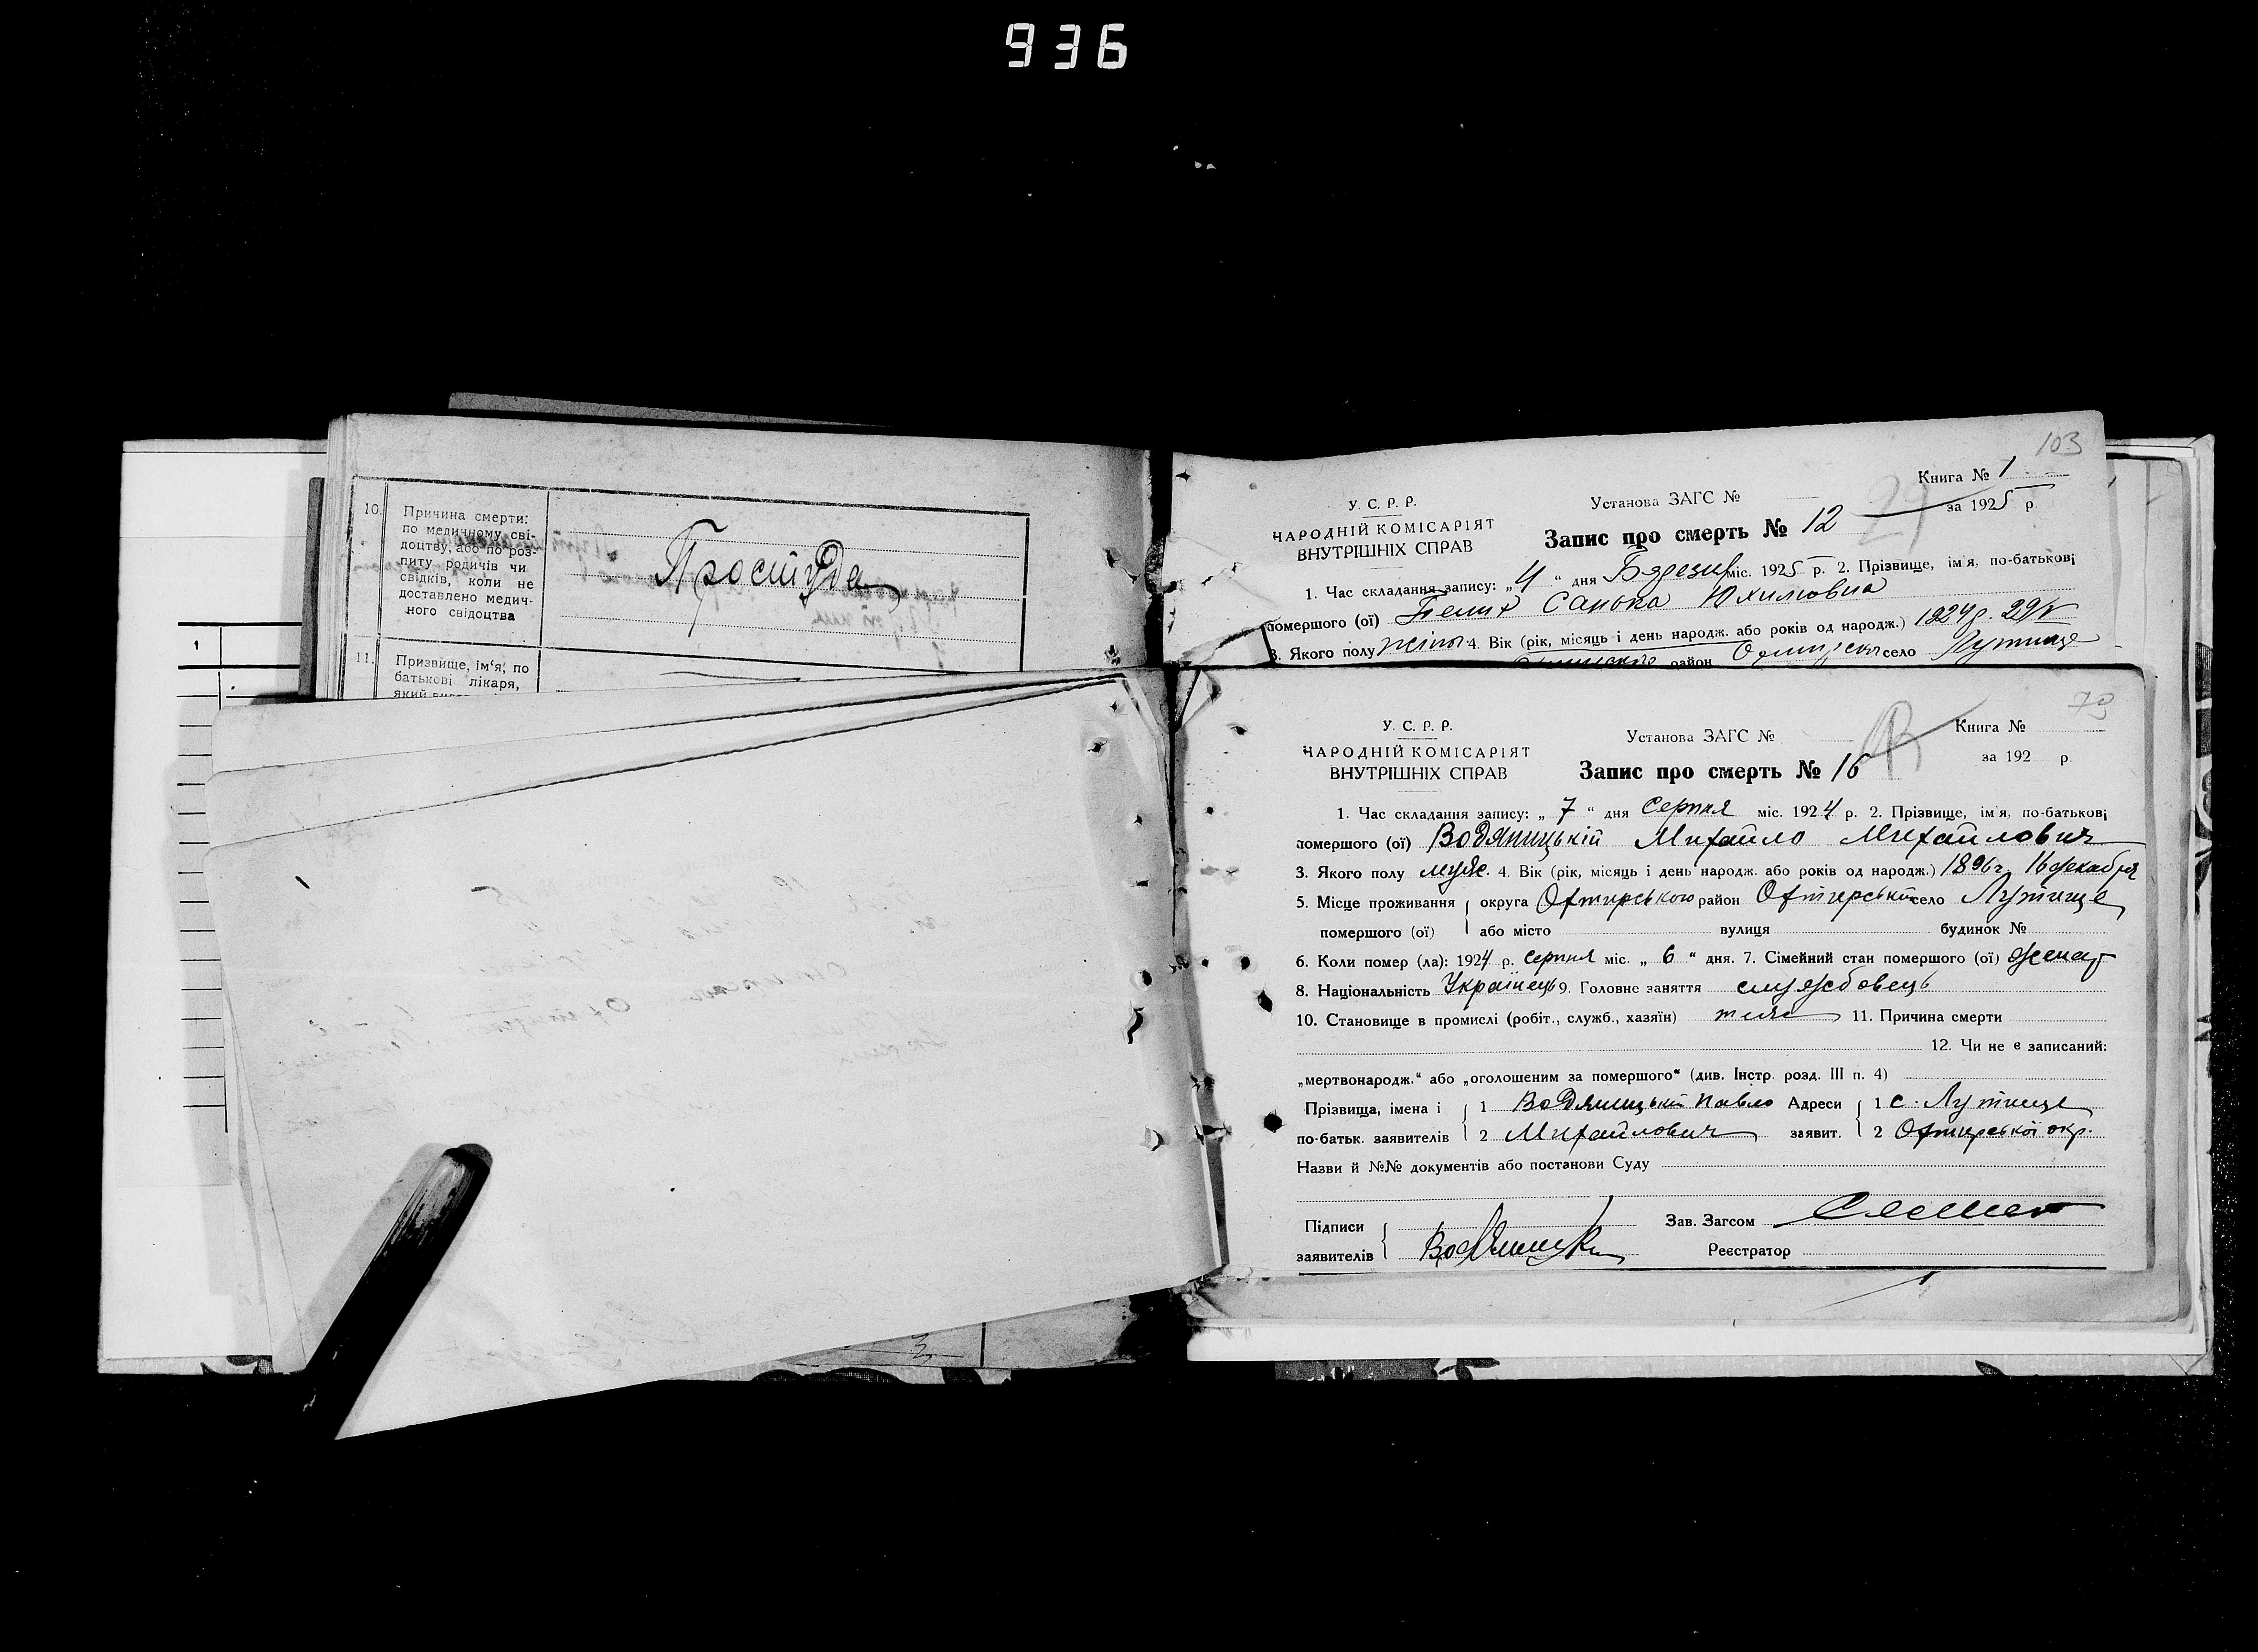 936
10. Причина смерти:
по медичному сві-
доцтву, або по роз-
питу родичів чи
свідків, коли не
доставлено медич-
ного свідоцтва
Простуда
11. Призвище, ім'я, по
батькові лікаря,
1
103
Книга № 1
У. С. Р. Р.
Установа ЗАГС №
за 1925 р.
НАРОДНІЙ КОМІСАРІЯТ
ВНУТРІШНІХ СПРАВ
Запис про смерть № 12
1. Час складання запису: „4“ дня міс. 1925 р. 2. Прізвище, ім'я, по-батькові
помершого (ої) Санька Юхимовна
3. Якого полу 4. Вік (рік, місяць і день народж. або років од народж.) 1924 р.
район село Лутище
79
У. С. Р. Р.
Установа ЗАГС №
Книга №
НАРОДНІЙ КОМІСАРІЯТ
ВНУТРІШНІХ СПРАВ
Запис про смерть № 16
за 192 р.
1. Час складання запису: „7“ дня Серпня міс. 1924 р. 2. Прізвище, ім'я, по-батькові
помершого (ої) Водяницькій Михайло Михайлович
3. Якого полу муже. 4. Вік (рік, місяць і день народж. або років од народж.) 1896 г. 16 декабря
5. Місце проживання округа Охтирського район Охтирський село Лутище
помершого (ої) або місто вулиця будинок №
6. Коли помер (ла): 1924 р. серпня міс. „6“ дня. 7. Сімейний стан помершого (ої) женат
8. Національність Українець 9. Головне заняття службовець
10. Становище в промислі (робіт., служб., хазяїн) 11. Причина смерти
12. Чи не є записаний:
„мертвонародж.“ або „оголошеним за помершого“ (див. Інстр. розд. III п. 4)
Прізвища, імена і 1 Водяницький Павло Адреси 1 с. Лутище
по-батьк. заявителів 2 Михайлович заявит. 2 Охтирської окр.
Назви й №№ документів або постанови Суду
Підписи Зав. Загсом
заявителів Водяницкий Реєстратор